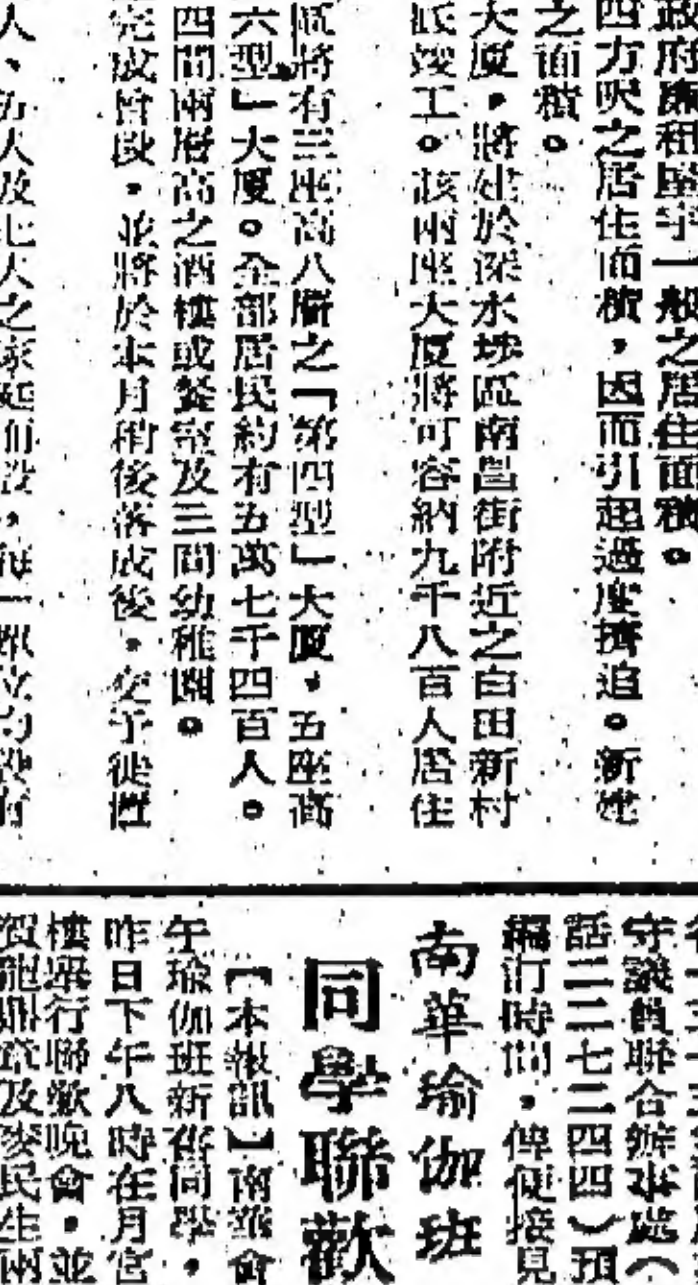 政府廉租屋宇一般之居住面積。
四方呎之居住面積,因而引起過度擠迫。新建
之面積。
大廈,將建於深水埗區南昌街附近之白田新村
竣工。該兩座大廈將可容納九千八百人居住
區將有三座高八層之「第四型」大廈,五座高
六型」大廈。全部居民約有五萬七千四百人。
四間兩層高之酒樓或餐室及三間幼稚園。
完成階段,並將於本月稍後落成後,交予徙置
人、伍人及七人之家庭而設,每一單位均設有
守議員聯合辦事處(
話二二七二四四)預
編訂時間,俾便接見
南華瑜伽班
同學聯歡
【本報訊】南華會
午瑜伽班新舊同學,
昨日下午八時在月宮
樓舉行聯歡晚會,並
賀龍鼎章及麥民生兩